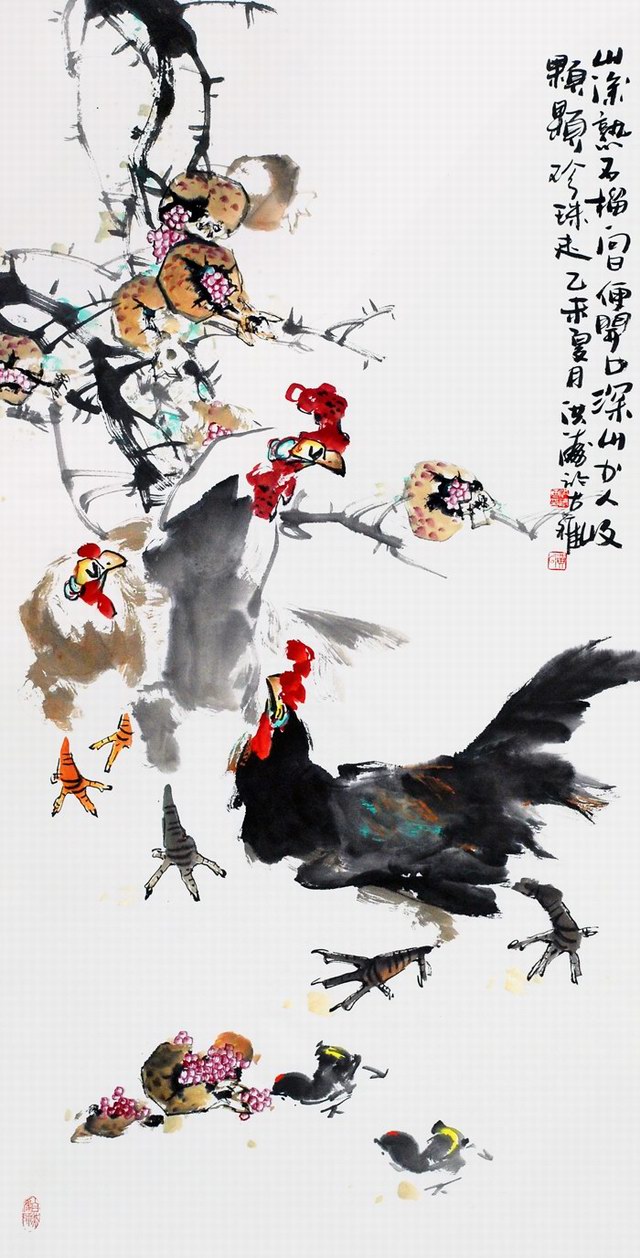 山深熟石榴向日便開口深山少人收
顆顆珍珠走乙未夏月洪海於古雍